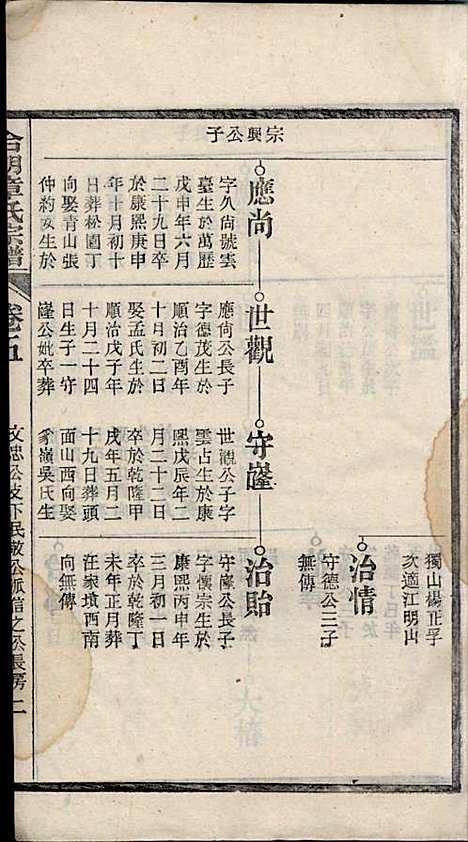 獨山楊正孚
次適江明山
治情
守德公三子
無傳
宗興公子
應尚
字久尚號雲
臺生於萬歷
戊申年六月
二十九日卒
於康熙庚申
年十月初十
日葬松園丁
向娶青山張
仲約女生於
世觀
應尚公長子
字德茂生於
順治乙酉年
十月初二日
娶孟氏生於
順治戊子年
十月二十四
日生子一守
㠠公妣卒葬
守㠠
世觀公子字
雲占生於康
熙戊辰年二
月二十二日
卒於乾隆甲
戌年五月二
十九日葬頭
面山西向娶
嶺吳氏生
治貽
守㠠公長子
字懷宗生於
康熙丙申年
三月初一日
卒於乾隆丁
未年正月葬
汪家墳西南
向無傳
合明章氏宗譜
卷五
文忠公支下民敏公派信之公長房
二